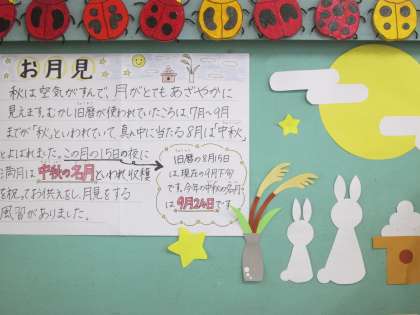 お月見
秋は空気がすんで、月がとてもあざやかに
見えます。むかし旧暦が使われていたころは、7月~9月
までが「秋」といわれていて、真ん中に当たる8月は「中秋」
とよばれました。この月の15日の夜に
満月は中秋の名月といわれ収穫
を祝ってお供えをし、月見をする
風習がありました。
旧暦の8月15日
は、現在の9月下旬
です。今年の中秋の名月
は9月24日です。